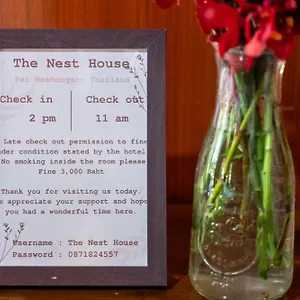 The Nest House
Pai Maehongson Thailand
Check in
Check out
2 pm
11 am
Late check out permission to fine
under condition stated by the hotel
No smoking inside the room please
Fine 3,000 Baht
Thank you for visiting us today.
We appreciate your support and hope
you had a wonderful time here.
Username : The Nest House
Password : 0871824557